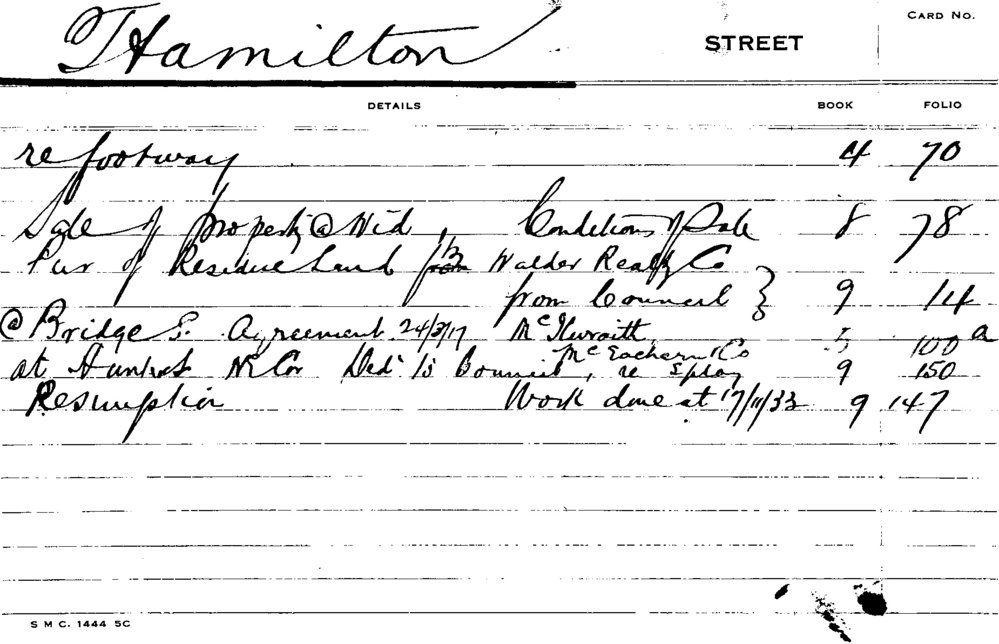 CARD NO.
Hamilton STREET
DETAILS BOOK FOLIO
re footway 4 70
Sale of property @ Wid, Conditions of Sale 8 78
Pur of Residue Land Walder Realty Co
from Council } 9 14
@ Bridge S. Agreement 24/3/17 McIlwraith 5 100 a
McEachern & Co
at Hunter St NE Cor Ded. to Council, re Splay 9 150
Resumption Work done at 17/11/33 9 147
S M C. 1444 5C